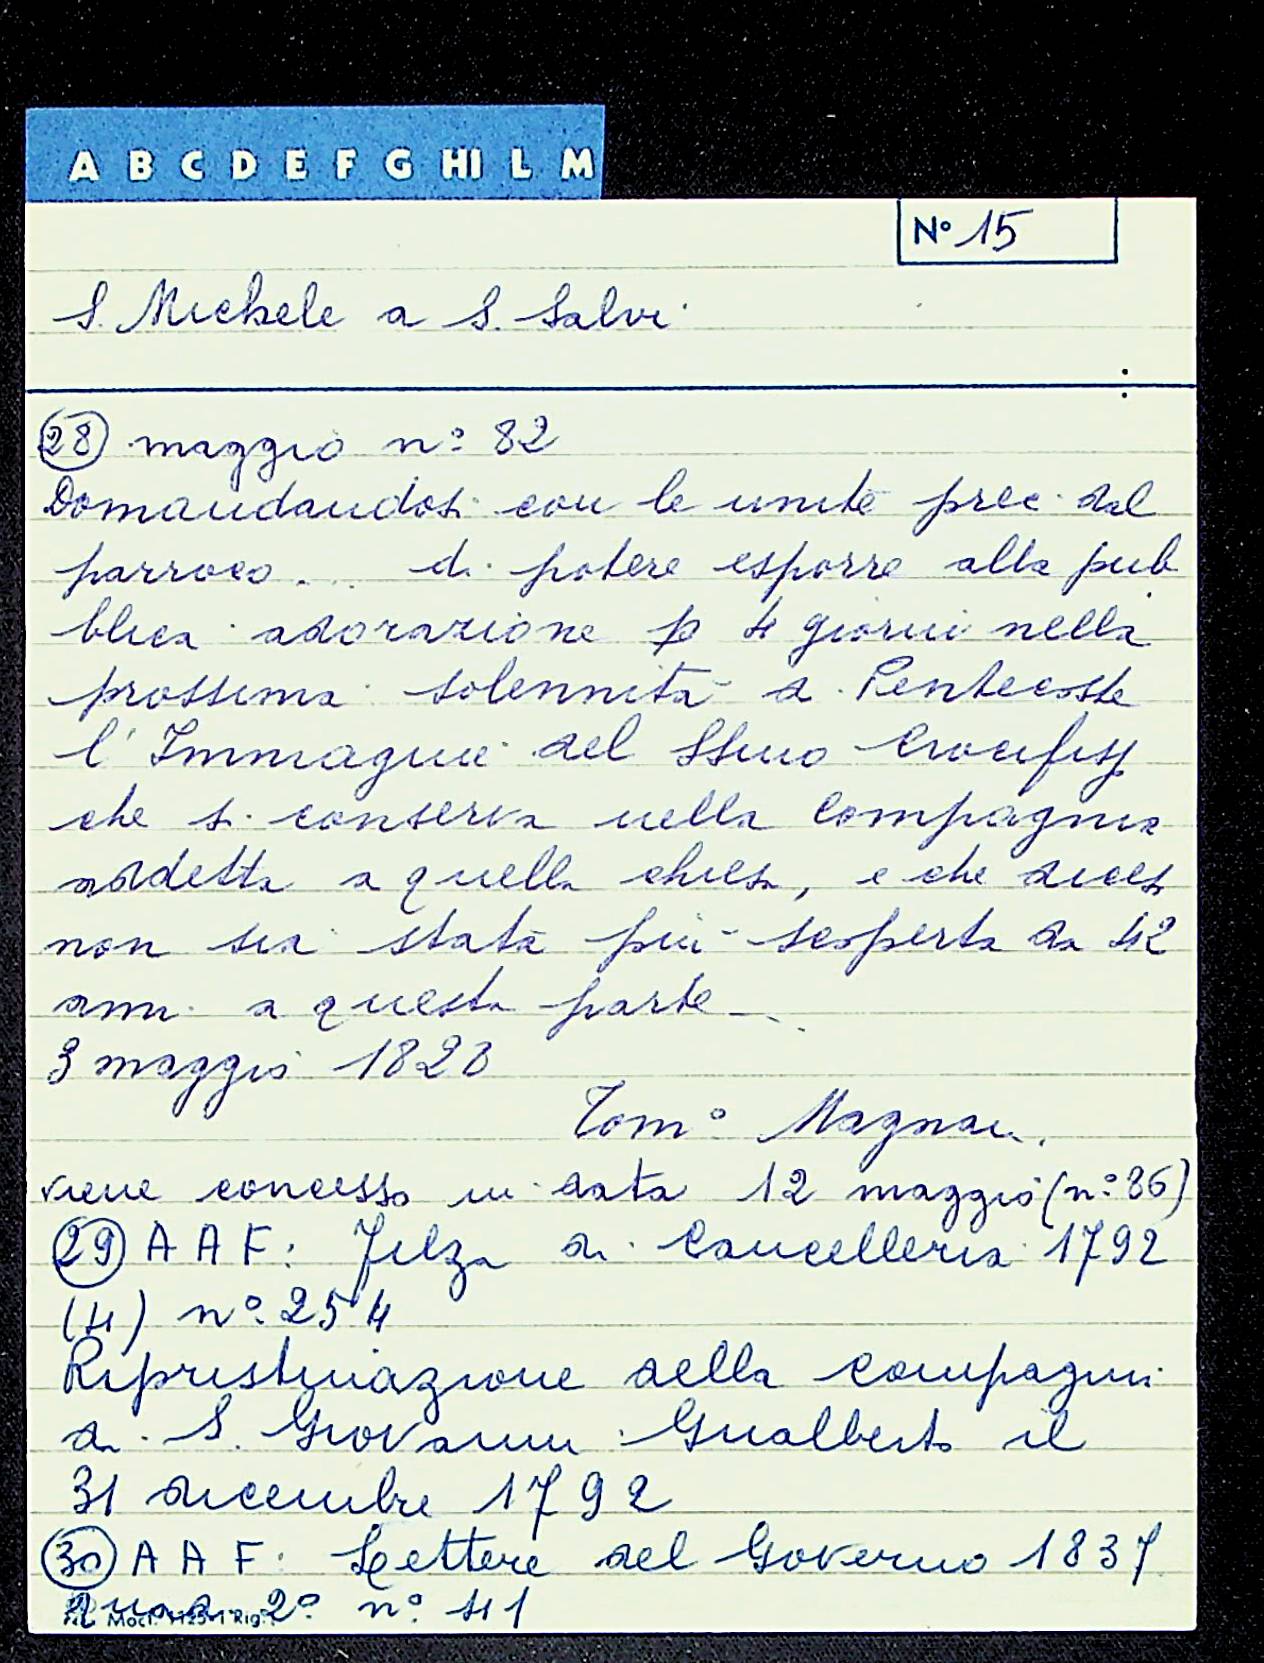 A B C D E F G HI L M
N° 15
S. Michele a S. Salvi
28 maggio n° 82
Domandandosi con le unite prec. dal
parroco ... di potere esporre alla pub
blica adorazione p 4 giorni nella
prossima solennità di Pentecoste
l'Immagine del SSmo Crocifisso
che si conserva nella Compagnia
addetta a quella chiesa, e che dicesi
non sia stata più scoperta da 42
anni a questa parte ...
3 maggio 1828
Tom° Magnani.
viene concesso in data 12 maggio (n° 86)
29 A A F: Filza di Cancelleria 1792
(4) n° 254
Ripristinazione della compagnia
di S. Giovanni Gualberto il
31 dicembre 1792
30 A A F: Lettere del Governo 1837
2° n° 41
Mod. Rig.